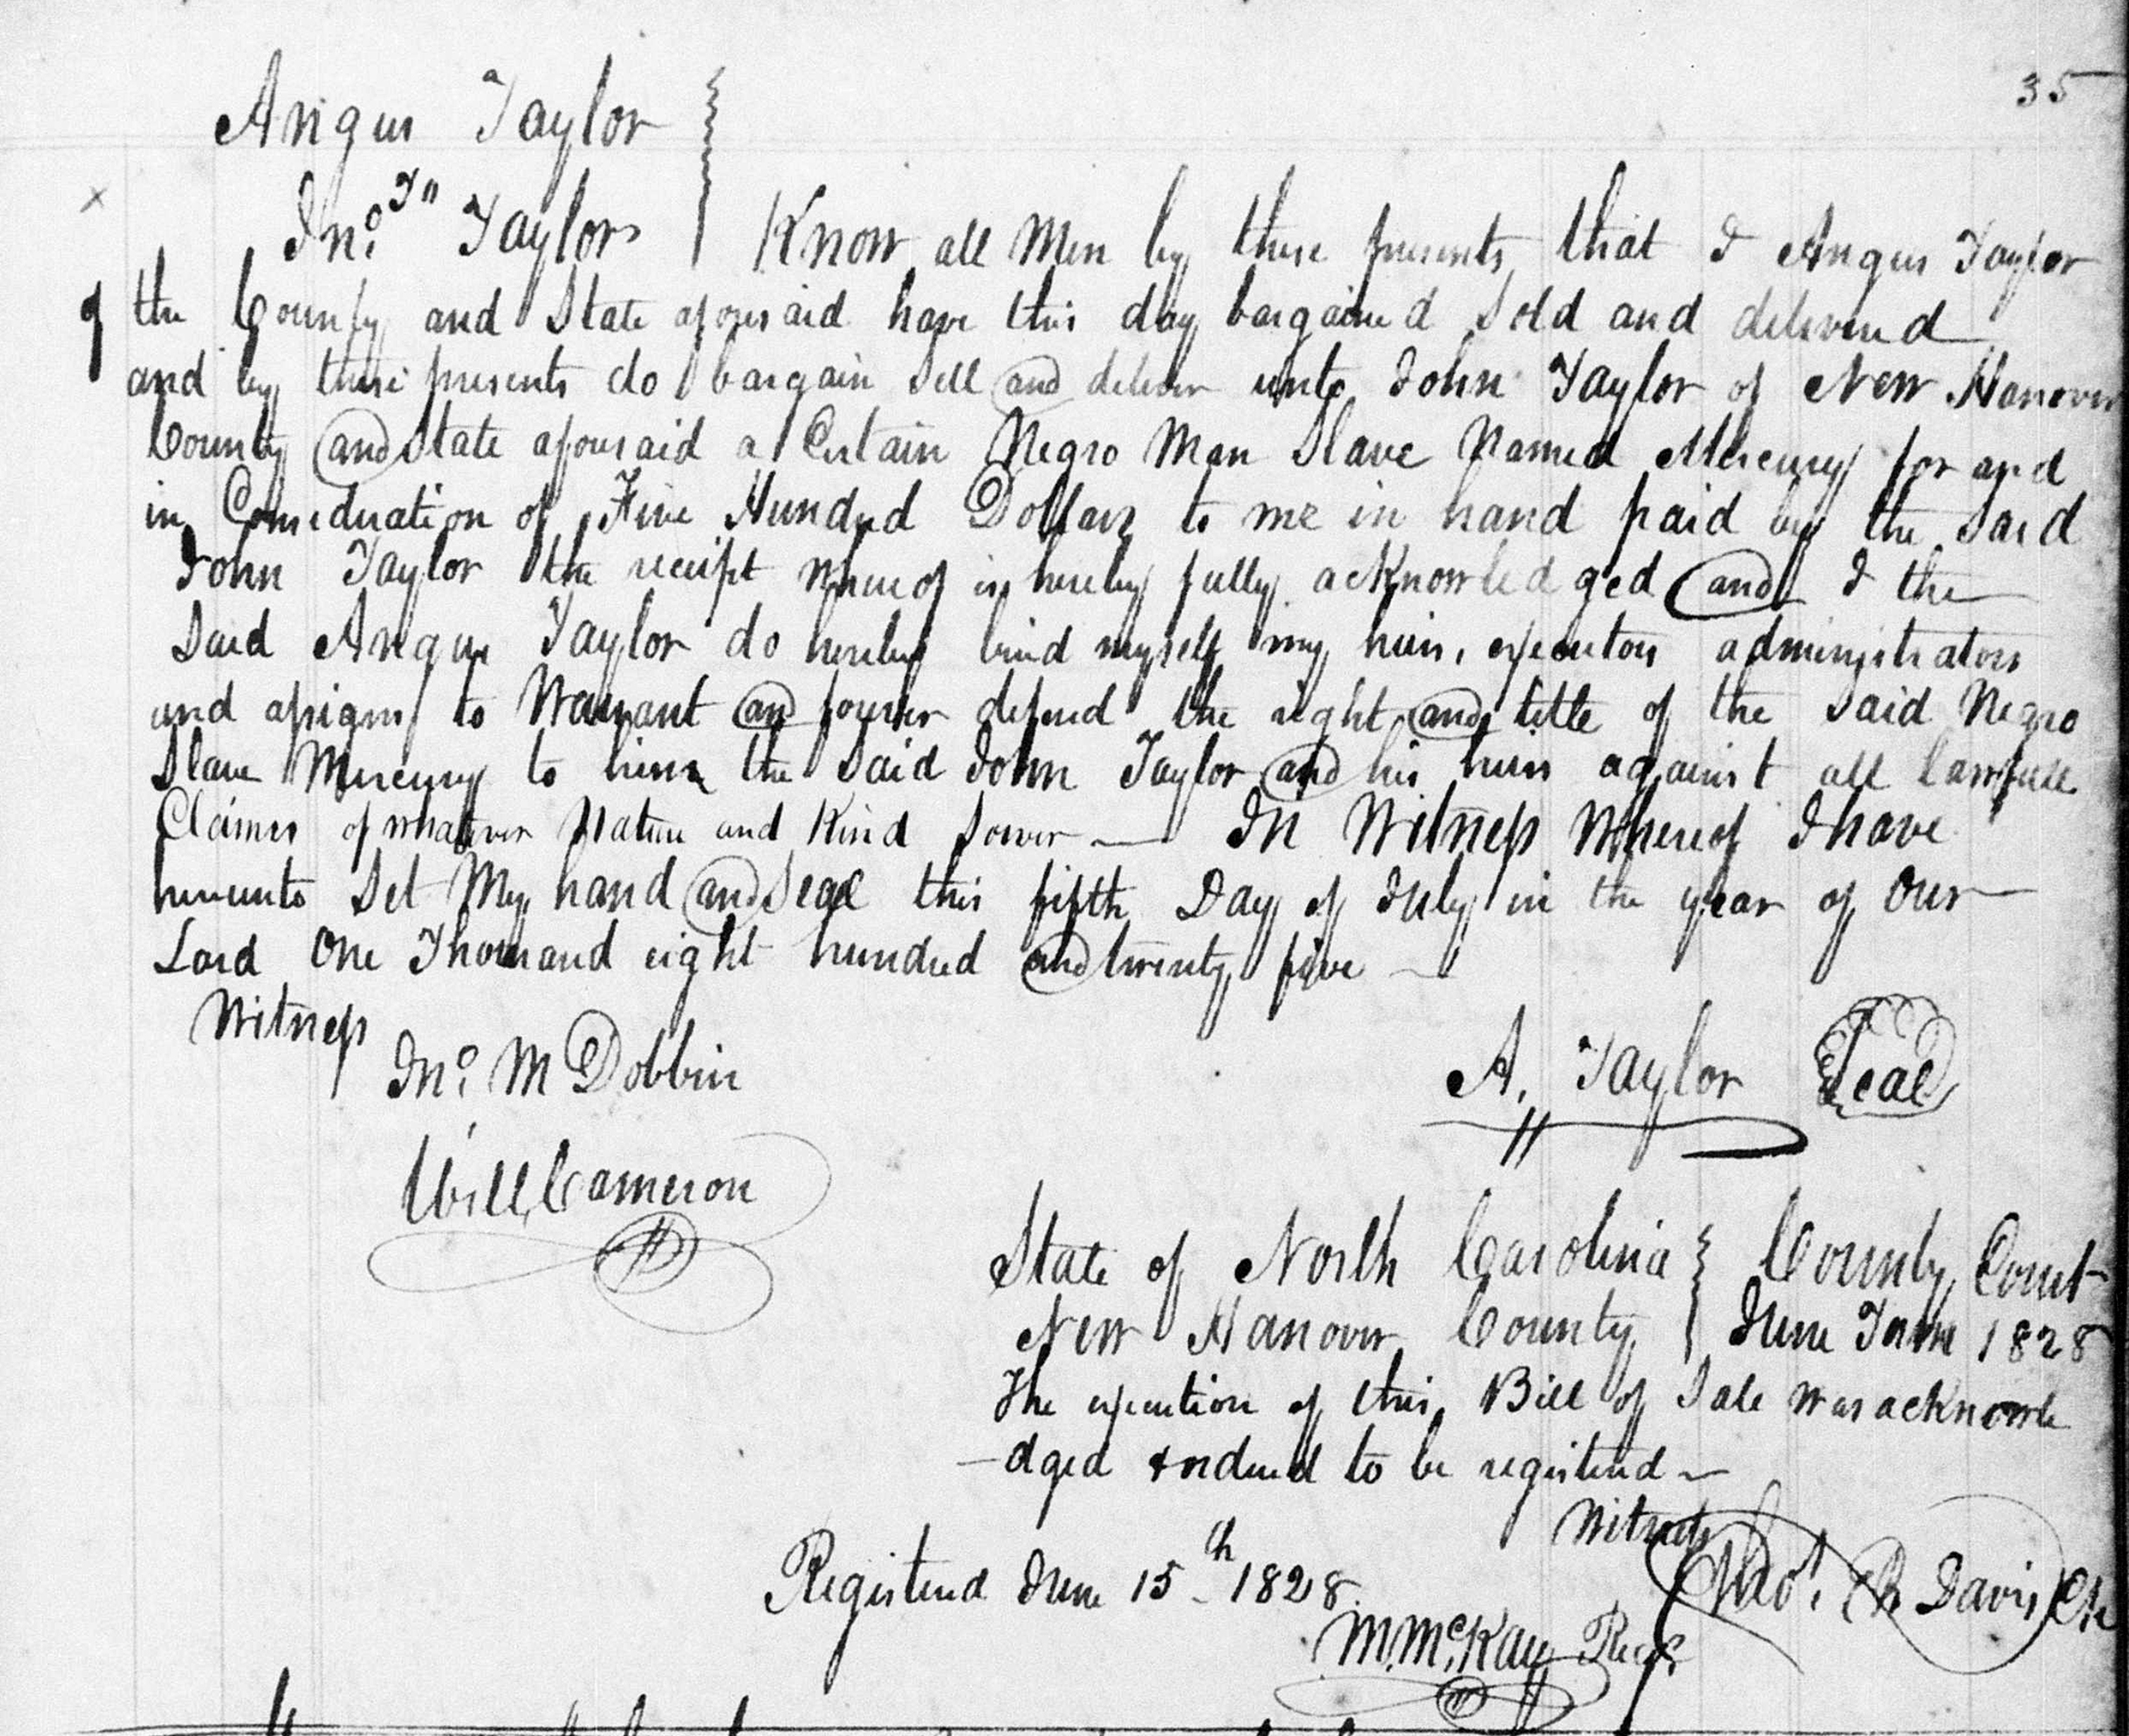 35
Angus Taylor
Jno. Taylor
Know all Men by these presents, that I Angus Taylor
of the County and State aforesaid have this day bargained Sold and delivered
and by these presents do bargain Sell and deliver unto John Taylor of New Hanover
County and State aforesaid a Certain Negro Man Slave Named Mercury for and
in Consideration of Five Hundred Dollars to me in hand paid by the Said
John Taylor the receipt whereof is hereby fully acknowledged and I the
Said Angus Taylor do hereby bind myself my heirs, executors administrators
and assigns to Warrant an forever defend the right and title of the Said Negro
Slave Mercury to him the Said John Taylor and his heirs against all lawfull
Claims of whatever Nature and Kind Sower — In Witness Whereof I have
hereunto Set My hand and Seal this fifth Day of July in the year of Our
Lord One Thousand eight hundred and twenty five —
Witness
Jno. M Dobbin
A. Taylor Seal
Will Cameron
State of North Carolina County Court
New Hanover County June Term 1828
The execution of this Bill of Sale was acknowle
-dged & ordered to be registered —
Witness
Thos. F. Davis Clk
Registered June 15th 1828.
M. McKay Regr.